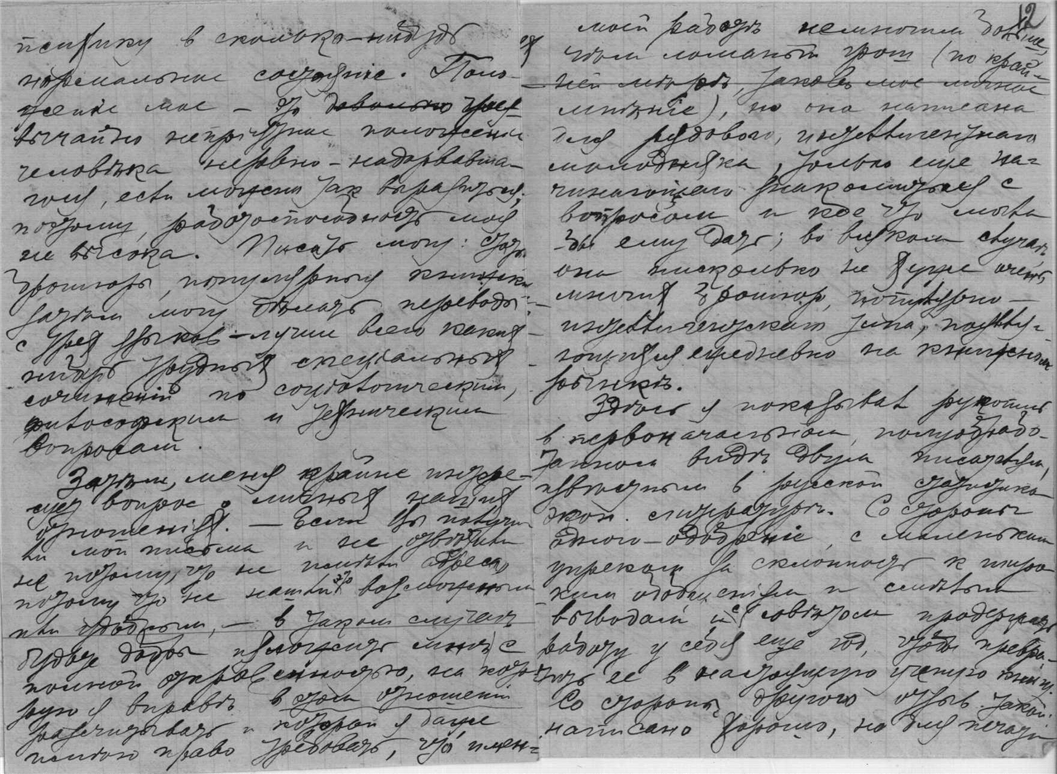 психику в сколько-нибудь
нормальное состояніе. Поло-
женіе мое – это довольно чрез-
вычайно непріятное положеніе
человѣка нервно-надорвавша-
гося, если можно так выразиться,
поэтому, работоспособность моя
не высока. Писать могу: статьи,
брошюры, популярныя книжки
затем могу дѣлать переводы
с трех языков – лучше всего какія
нибудь трудныя спеціальныя
сочиненія по соціологическим,
философским и техническим
вопросам.
Затѣм, меня крайне интере-
сует вопрос о личных наших
отношеніях. – Если Вы получи-
ли мои письма и не отвѣтили
не потому, что не имѣли адреса,
потому что не нашли это возможным
или удобным, – в таком случаѣ
будьте добры изложить мнѣ с
полной откровенностью, на кото-
рую я вправѣ в этом отношеніи
разсчитывать и которой я даже
имѣю право требовать, что имен-
12
моей работѣ немногим больше,
чѣм ломаный грош (по край-
ней мѣрѣ, таково мое личное
мнѣніе), но она написана
для рядового, интеллигентнаго
молодняка, только еще на-
чинающаго знакомиться с
вопросом и кое что могла
бы ему дать; во всяком случаѣ
она нисколько не хуже очень
многих брошюр, популярно-
интеллигентскаго типа, появля-
ющихся ежедневно на книжном
рынкѣ.
Здѣсь я показывал рукопись
в первоначальном, полуобрабо-
танном видѣ двум писателям,
извѣстным в русской статистико-
экон. литературѣ. Со стороны
одного – одобреніе, с маленьким
упреком за склонность к широ-
ким обобщеніям и смѣлым
выводам и с совѣтом продержать
работу у себя еще год, чтобы превра-
тить ее в настоящую ученую книгу.
Со стороны другого отзыв такой:
написано хорошо, но для печати